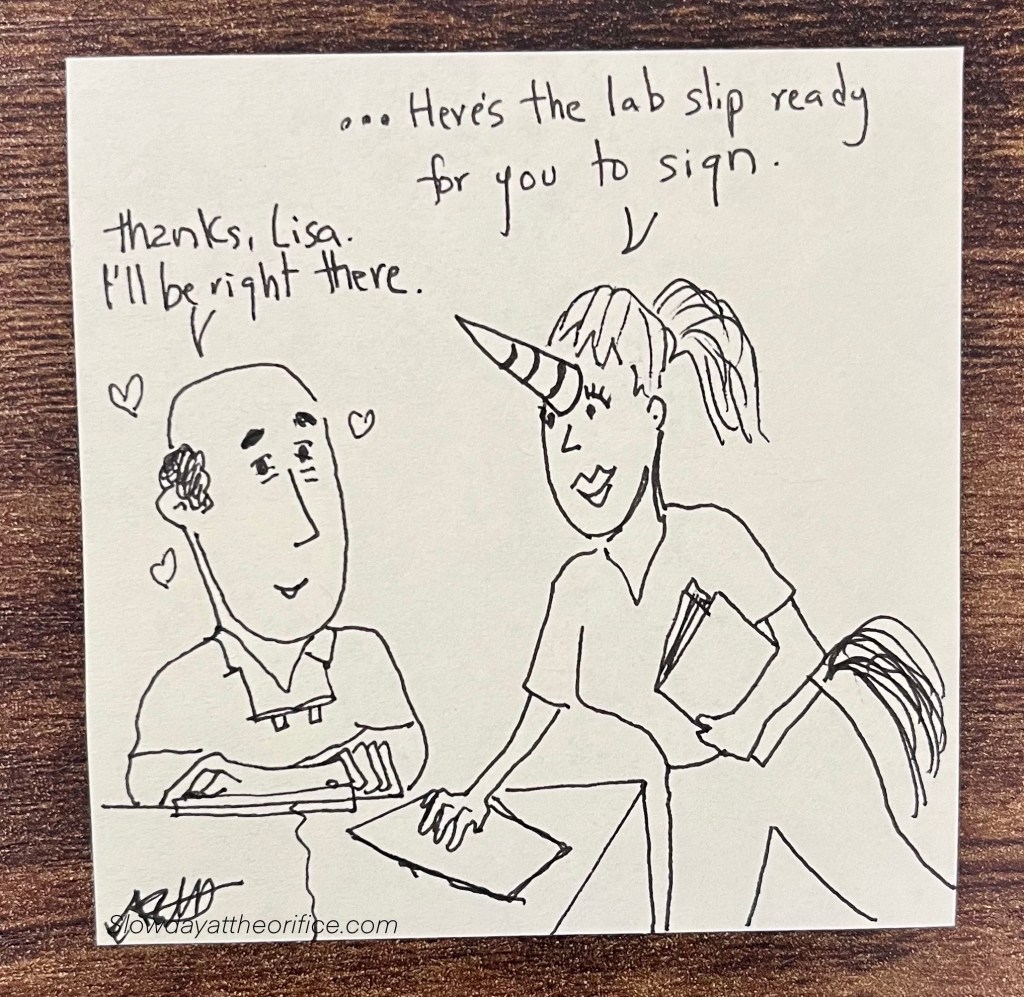 ... Here's the lab slip ready
for you to sign.
thanks, Lisa.
I'll be right there.
Slowdayattheorifice.com